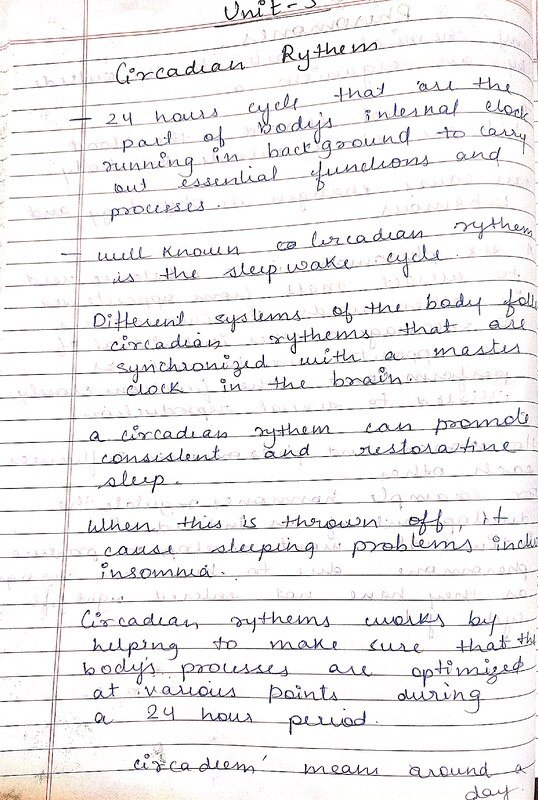 Unit-5
Circadian Rythem
- 24 hours cycle that are the
part of body's internal clock
running in background to carry
out essential functions and
processes.
- well known Circadian rythem
is the sleep wake cycle.
Different systems of the body foll
circadian rythems that are
synchronized with a master
clock in the brain.
a circadian rythem can promote
consistent and restorative
sleep.
When this is thrown off, it
cause sleeping problems inclu
insomnia.
Circadian rythems works by
helping to make sure that the
body's processes are optimized
at various points during
a 24 hour period.
'circadiem' means around a
day